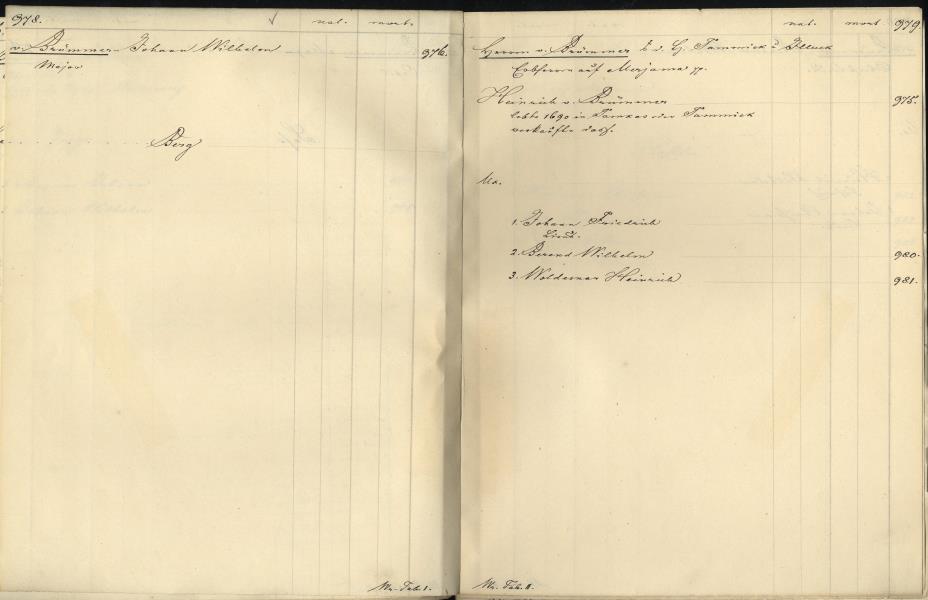 978. nat. mort.
v. Brümmer Johann Wilhelm 976.
Major
Berg
Ux. Tab. I.
nat. mort. 979
Herrn v. Brümmer Tammick u. Illuck
Erbherrn auf Merjama pp.
Heinrich v. Brümmer 975.
lebte 1690 in Tammick
verkaufte dass.
Ux.
1. Johann Friedrich
Lieut.
2. Berend Wilhelm 980.
3. Woldemar Heinrich 981.
Tab. II.